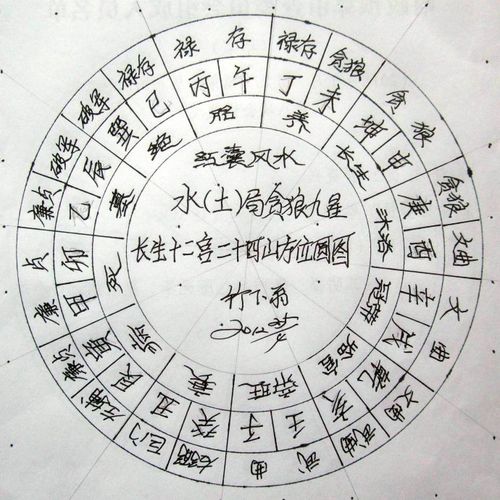 禄存
禄存
贪狼
贪狼
贪狼
文曲
文曲
文曲
武曲
武曲
右弼
巨门
左辅
廉贞
廉贞
廉贞
破军
破军
禄存
丙
午
丁
未
坤
申
庚
酉
辛
戌
乾
亥
壬
子
癸
丑
艮
寅
甲
卯
乙
辰
巽
巳
胎
养
长生
沐浴
冠带
临官
帝旺
衰
病
死
墓
绝
囊风水
水(土)局贪狼九星
长生十二宫二十四山方位圆图
竹下雨
2012